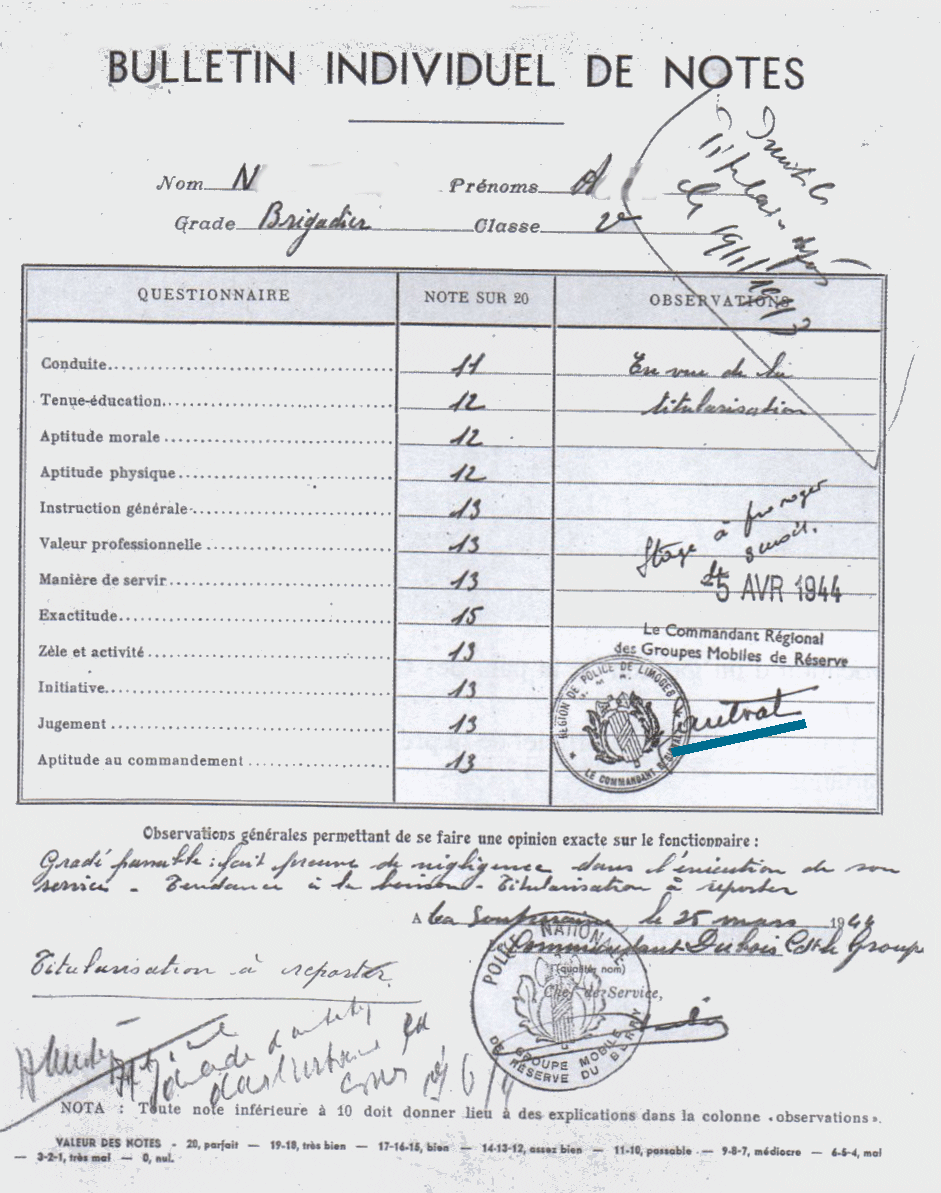 BULLETIN INDIVIDUEL DE NOTES
Nom N Prénoms A
Grade Brigadier Classe 2e
QUESTIONNAIRE NOTE SUR 20 OBSERVATIONS
Conduite 11 En vue de la
Tenue-éducation 12 titularisation
Aptitude morale 12
Aptitude physique 12
Instruction générale 13 Stage à proroger
Valeur professionnelle 13 3 mois.
Manière de servir 13 5 AVR 1944
Exactitude 15 Le Commandant Régional
Zèle et activité 13 des Groupes Mobiles de Réserve
Initiative 13 RÉGION DE POLICE DE LIMOGES
Jugement 13
Aptitude au commandement 13 LE COMMANDANT
Observations générales permettant de se faire une opinion exacte sur le fonctionnaire :
Gradé passable : fait preuve de négligence dans l'exécution de son
service - Tendance à la boisson - Titularisation à reporter
A La Souterraine le 25 mars 1944
Le Commandant Dubois Cdt le Groupe
(qualité nom)
Chef de Service,
POLICE NATIONALE
GROUPE MOBILE
DE RÉSERVE DU BERRY
Titularisation à reporter
NOTA : Toute note inférieure à 10 doit donner lieu à des explications dans la colonne «observations».
VALEUR DES NOTES - 20, parfait — 19-18, très bien — 17-16-15, bien — 14-13-12, assez bien — 11-10, passable — 9-8-7, médiocre — 6-5-4, mal
— 3-2-1, très mal — 0, nul.